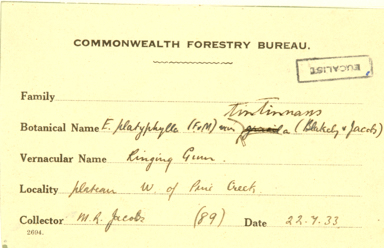 COMMONWEALTH FORESTRY BUREAU.
EUCALIST
Family
tintinnans
Botanical Name E. platyphylla (FvM) var a (Blakely & Jacobs)
Vernacular Name Ringing Gum.
Locality plateau W. of Pine Creek
Collector M.R. Jacobs (89) Date 22.7.33
2694.